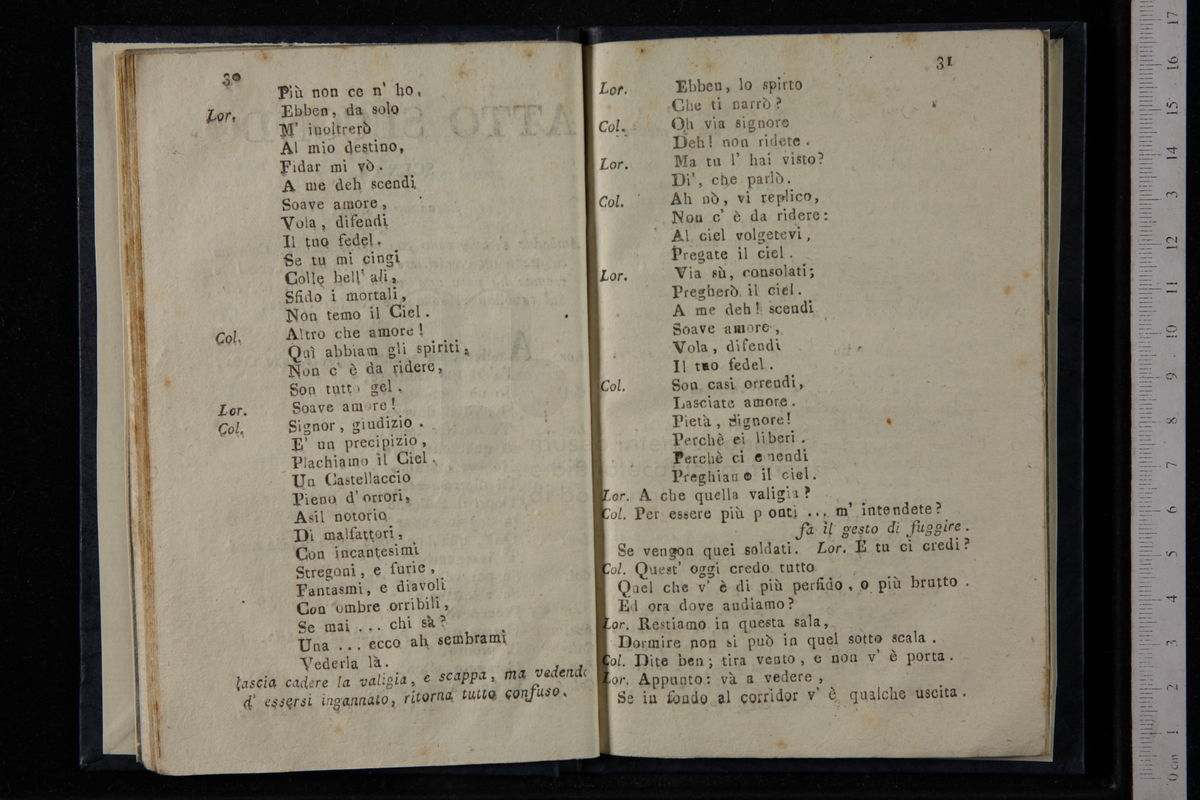 30
Più non ce n' ho.
Lor. Ebben, da solo
M' inoltrerò
Al mio destino,
Fidar mi vò.
A me deh scendi
Soave amore,
Vola, difendi
Il tuo fedel.
Se tu mi cingi
Colle bell' ali,
Sfido i mortali,
Non temo il Ciel.
Col. Altro che amore!
Quì abbiam gli spiriti,
Non c' è da ridere,
Son tutto gel.
Lor. Soave amore!
Col. Signor, giudizio.
E' un precipizio,
Plachiamo il Ciel.
Un Castellaccio
Pieno d' orrori,
Asil notorio
Di malfattori,
Con incantesimi
Stregoni, e furie,
Fantasmi, e diavoli
Con ombre orribili,
Se mai ... chi sà?
Una ... ecco ah sembrami
Vederla là.
lascia cadere la valigia, e scappa, ma vedendo
d' essersi ingannato, ritorna tutto confuso.
31
Lor. Ebben, lo spirto
Che ti narrò?
Col. Oh via signore
Deh! non ridete.
Lor. Ma tu l' hai visto?
Di', che parlò.
Col. Ah nò, vi replico,
Non c' è da ridere:
Al ciel volgetevi,
Pregate il ciel.
Lor. Via sù, consolati;
Pregherò il ciel.
A me deh! scendi
Soave amore,
Vola, difendi
Il tuo fedel.
Col. Son casi orrendi,
Lasciate amore.
Pietà, signore!
Perchè ei liberi.
Perchè ci emendi
Preghiamo il ciel.
Lor. A che quella valigia?
Col. Per essere più pronti ... m' intendete?
fa il gesto di fuggire.
Se vengon quei soldati. Lor. E tu ci credi?
Col. Quest' oggi credo tutto
Quel che v' è di più perfido, o più brutto.
Ed ora dove andiamo?
Lor. Restiamo in questa sala,
Dormire non si può in quel sotto scala.
Col. Dite ben; tira vento, e non v' è porta.
Lor. Appunto: và a vedere,
Se in fondo al corridor v' è qualche uscita.